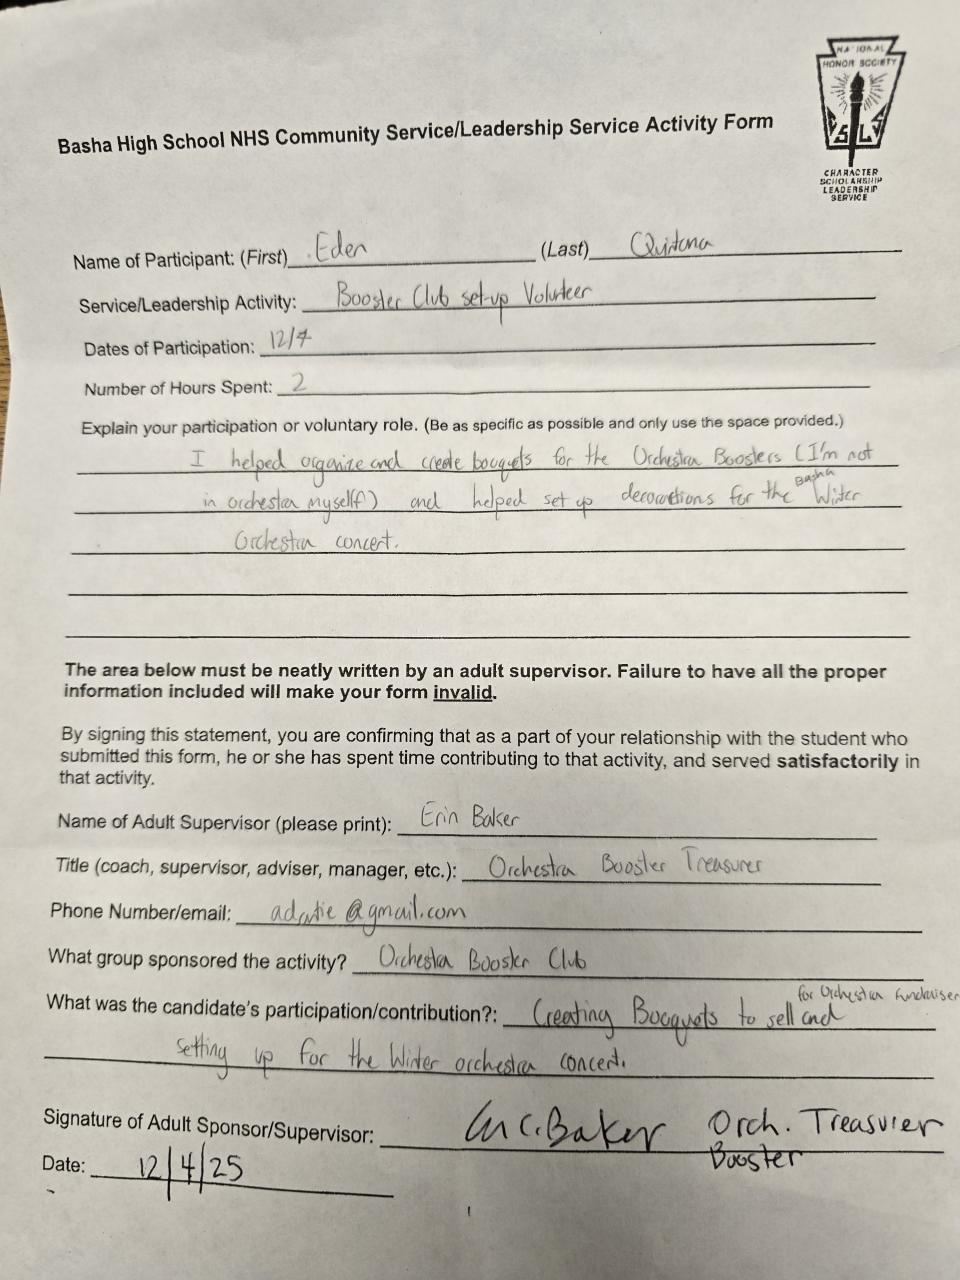 NATIONAL
HONOR SOCIETY
CHARACTER
SCHOLARSHIP
LEADERSHIP
SERVICE
Basha High School NHS Community Service/Leadership Service Activity Form
Name of Participant: (First) Eden (Last) Quintana
Service/Leadership Activity: Booster Club set-up Volunteer
Dates of Participation: 12/4
Number of Hours Spent: 2
Explain your participation or voluntary role. (Be as specific as possible and only use the space provided.)
I helped organize and create bouquets for the Orchestra Boosters (I'm not
in orchestra myself) and helped set up decorations for the Basha Winter
Orchestra concert.
The area below must be neatly written by an adult supervisor. Failure to have all the proper
information included will make your form invalid.
By signing this statement, you are confirming that as a part of your relationship with the student who
submitted this form, he or she has spent time contributing to that activity, and served satisfactorily in
that activity.
Name of Adult Supervisor (please print): Erin Baker
Title (coach, supervisor, adviser, manager, etc.): Orchestra Booster Treasurer
Phone Number/email: @gmail.com
What group sponsored the activity? Orchestra Booster Club
for Orchestra Fundraiser
What was the candidate's participation/contribution?: Creating Bouquets to sell and
setting up for the Winter orchestra concert.
Signature of Adult Sponsor/Supervisor: C. Baker Orch. Treasurer
Booster
Date: 12/4/25